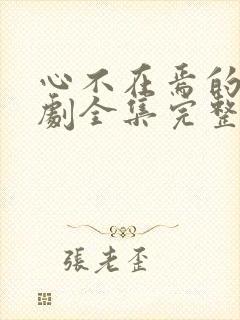 心不在焉的
劇全集完整
張老歪